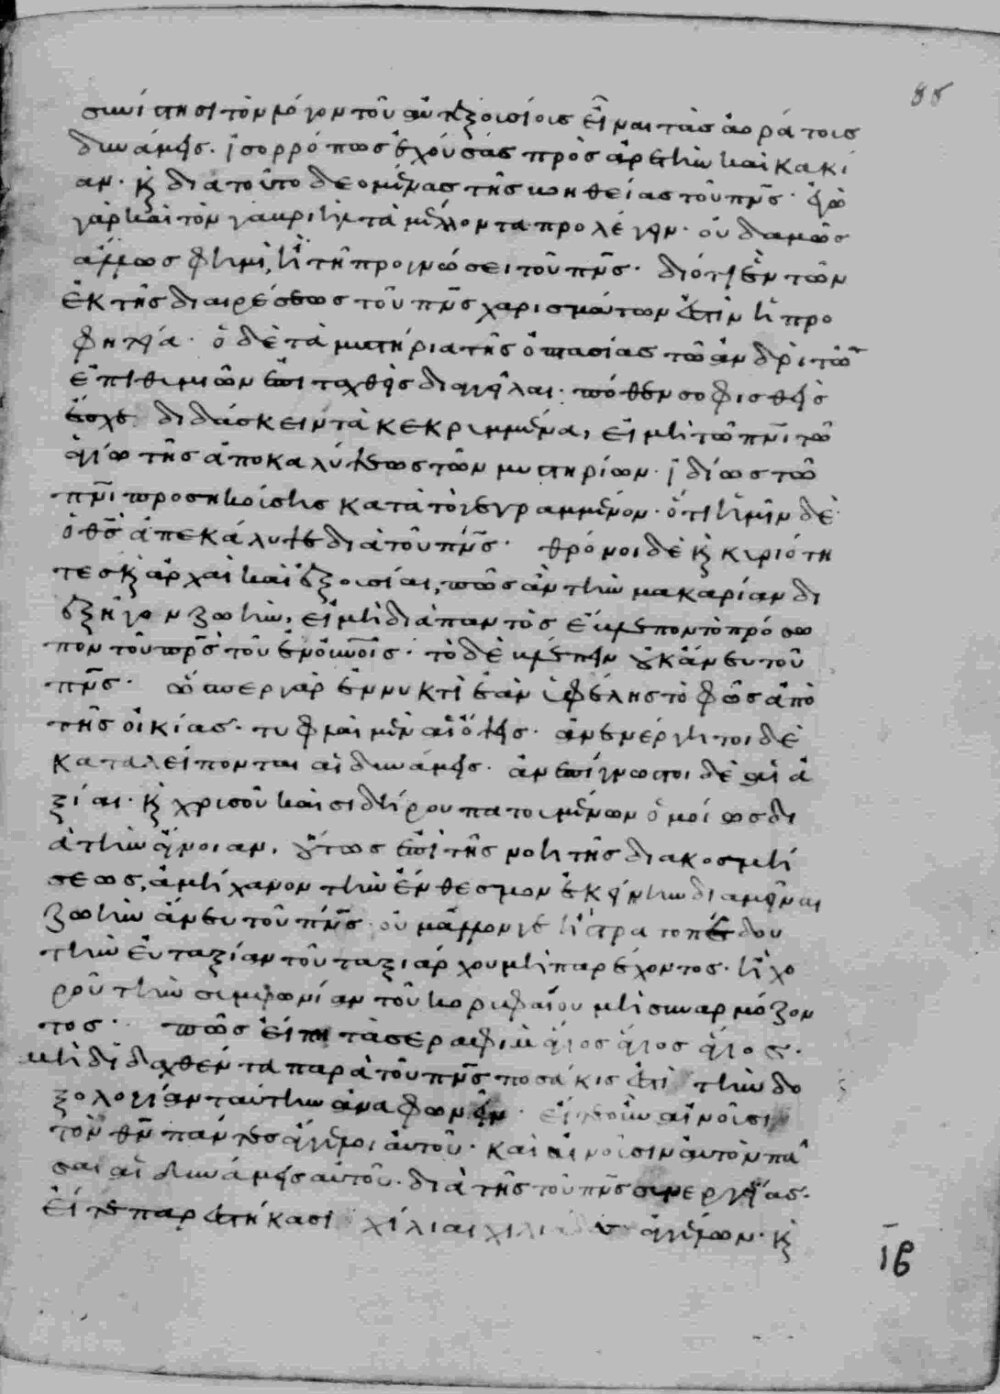 88
συνίστησι τὸν λόγον τοῦ αὐτεξουσίους εἶναι τὰς ἀοράτους
δυνάμεις. ἰσορρόπως ἐχούσας πρὸς ἀρετὴν καὶ κακί
αν. κ διατοῦτο δεομένας τῆς βοηθείας τοῦ πνς. ἐγὼ
γὰρ καὶ τὸν γαβριὴλ τὰ μέλλοντα προλέγειν. οὐδαμῶς
ἄλλως φημὶ, ἢ τῆ προγνώσει τοῦ πνς. διότι ἓν τῶν
ἐκ τῆς διαιρέσεως τοῦ πνς χαρισμάτων ἐστὶν ἡ προ
φητεία. ὁ δὲ τὰ μυστήρια τῆς ὀπτασίας τῶ ἀνδρὶ τῶν
ἐπιθυμιῶν ἐπιταχθεὶς διαγγεῖλαι. πόθεν σοφισθεὶς
ἔσχε διδάσκειν τὰ κεκρυμμένα, εἰ μὴ τῶ πνι τῶ
ἁγίω τῆς ἀποκαλύψεως τῶν μυστηρίων. ἰδίως τῶ
πνι προσηκούσης κατὰ τὸ γεγραμμένον. ὅτι ἡμῖν δὲ
ὁ θς ἀπεκάλυψε διὰ τοῦ πνς. θρόνοι δὲ κ κυριότη
τες κ ἀρχαὶ καὶ ἐξουσίαι, πῶς ἂν τὴν μακαρίαν δι
εξήγον ζωὴν, εἰ μὴ διαπαντὸς ἔβλεπον τὸ πρόσω
πον τοῦ πρς τοῦ ἐν οὐνοῖς. τὸ δὲ βλέπειν οὐκ ἄνευ τοῦ
πνς. ὥσπερ γὰρ ἐν νυκτὶ ἐὰν ὑφέλης τὸ φῶς ἀπὸ
τῆς οἰκίας. τυφλαὶ μὲν αἱ ὄψεις. ἀνενέργητοι δὲ
καταλείπονται αἱ δυνάμεις. ἀνεπίγνωστοι δὲ αἱ ἀ
ξίαι. κ χρυσοῦ καὶ σιδήρου πατουμένων ὁμοίως δι
ὰ τὴν ἄγνοιαν. οὕτως ἐπὶ τῆς νοητῆς διακοσμή
σεως, ἀμήχανον τὴν ἔνθεσμον ἐκείνην διαμεῖναι
ζωὴν ἄνευ τοῦ πνς οὐ μᾶλλόν γε ἢ στρατοπέδου
τὴν εὐταξίαν τοῦ ταξιάρχου μὴ παρέχοντος. ἢ χο
ροῦ τὴν συμφωνίαν τοῦ κορυφαίου μὴ συναρμόζον
τος. πῶς εἴπη τὰ σεραφὶμ ἅγιος ἅγιος ἅγιος.
μὴ διδαχθέντα παρὰ τοῦ πνς ποσάκις ἐστὶ τὴν δο
ξολογίαν ταύτην ἀναφωνεῖν. εἴτε οὖν αἰνοῦσι
τὸν θν πάντες ἄγγελοι αὐτοῦ. καὶ αἰνοῦσιν αὐτὸν πᾶ
σαι αἱ δυνάμεις αὐτοῦ. διὰ τῆς τοῦ πνς συνεργείας.
εἴτε παρεστήκασι χίλιαι χιλιάδες ἀγγέλων. κ
ιβ